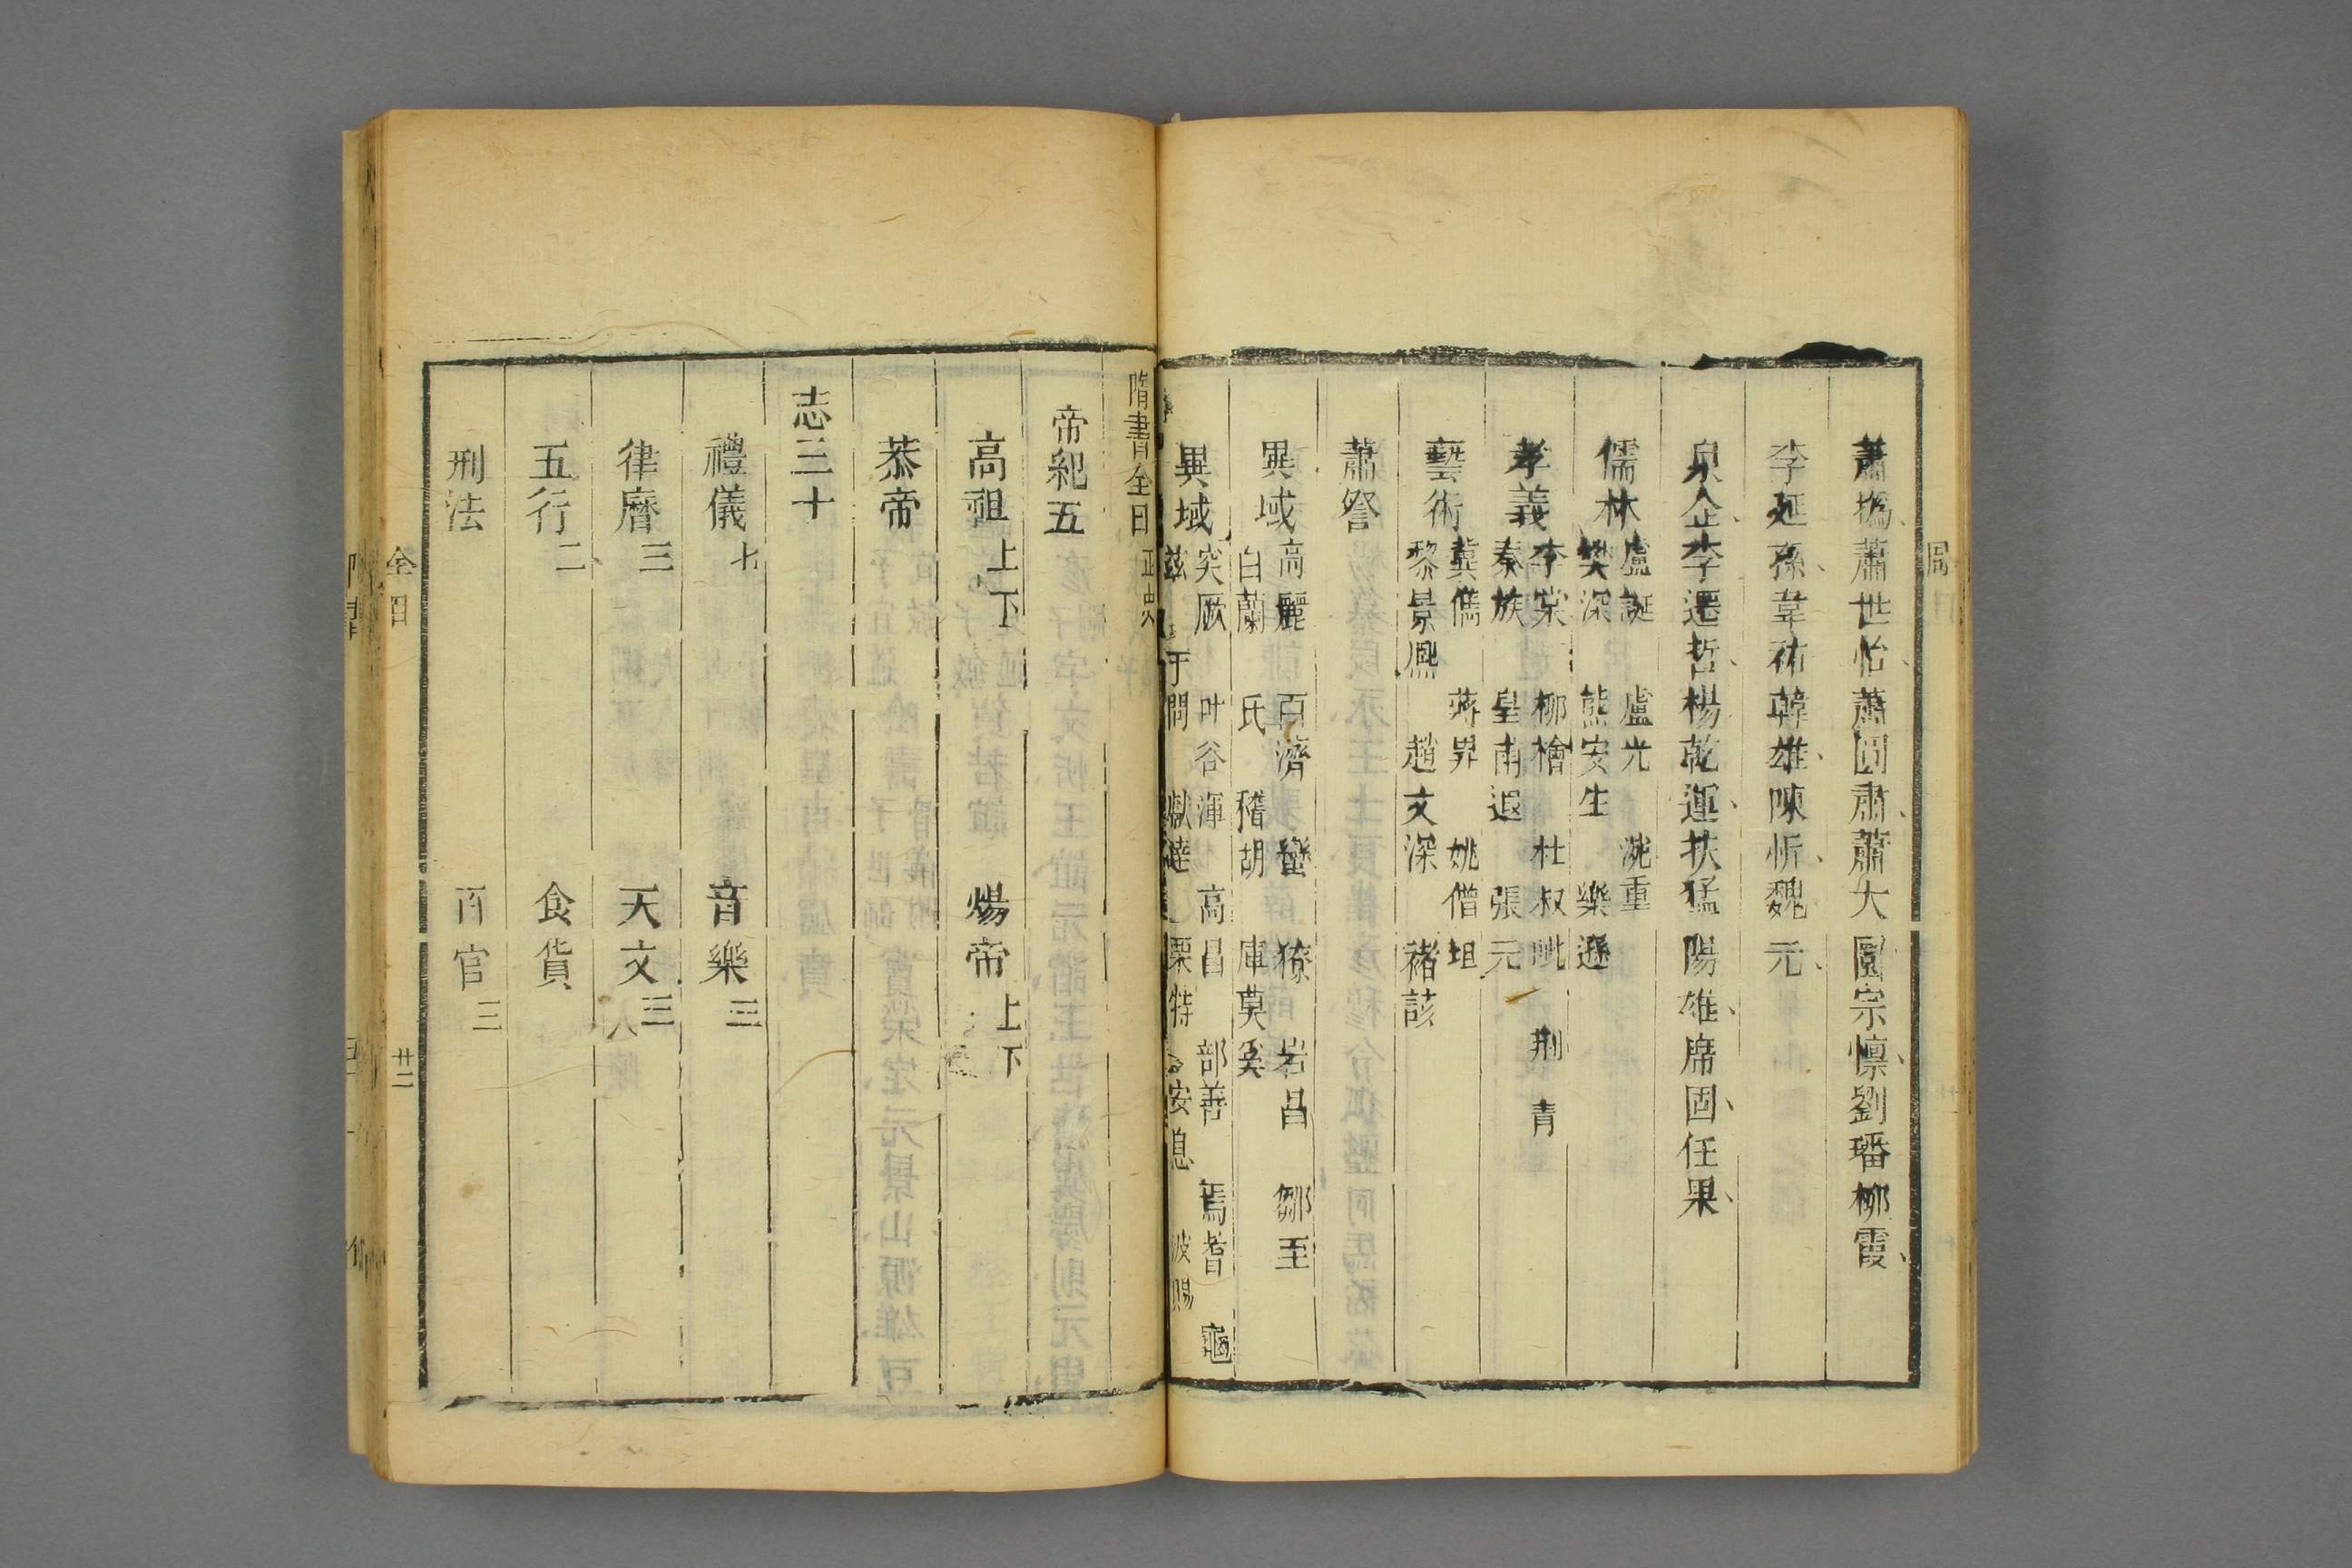 蕭撝蕭世怡蕭圓肅蕭大圜宗懍劉璠柳霞
李延孫韋祐韓雄陳忻魏元
泉企李遷哲楊乾運扶猛陽雄席固任果
儒林 盧誕 盧光 沈重
樊深 熊安生 樂遜
孝義 李棠 柳檜 杜叔毗 荆青
秦族 皇甫遐 張元
藝術 冀儁 蔣昇 姚僧坦
黎景熈 趙文深 褚該
蕭詧
異域 高麗 百濟 蠻 獠 宕昌 鄧至
白蘭 氐 稽胡 庫莫奚
異域 突厥 吐谷渾 高昌 鄯善 焉耆 龜
兹 于闐 囐噠 粟特 安息 波斯
隋書全目 正史
帝紀五
高祖上下 煬帝上下
恭帝
志三十
禮儀七 音樂三
律曆三 天文三
五行二 食貨
刑法 百官三
全目 廿二